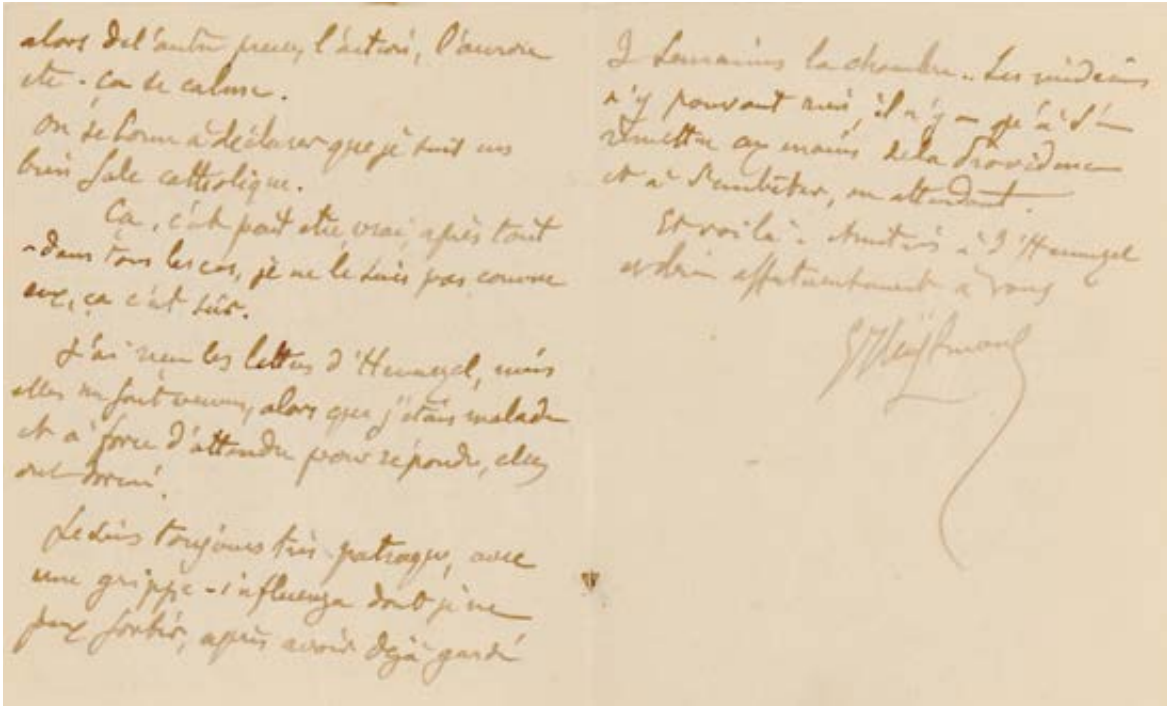 alors de l'autre presse, l'action, l'aurore
etc - ça se calme.
On se borne à déclarer que je suis un
bien sale catholique.
Ça, c'est peut etre vrai, après tout
- dans tous les cas, je ne le suis pas comme
eux, ça c'est sûr.
J'ai reçu les lettres d'Hennezel, mais
elles me sont venues, alors que j'étais malade
et à force d'attendre pour répondre, elles
ont dormi.
Je suis toujours très patraque, avec
une grippe - influenza dont je ne
peux sortir, après avoir déjà gardé
3 semaines la chambre.. Les médecins
n'y pouvant rien, il n'y a qu'à s'en
remettre aux mains de la Providence
et à s'embêter, en attendant.
Et voilà - Amitiés à d'Hennezel
et bien affectueusement à vous
GJHuÿsmans